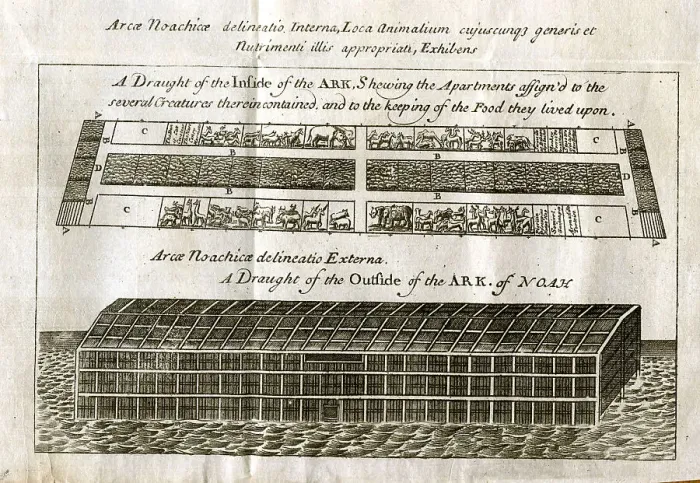 Arcæ Noachicæ delineatio Interna, Loca Animalium cujuscunq3 generis et
Nutrimenti illis appropriati, Exhibens
A Draught of the Inside of the ARK, Shewing the Apartments aſsign'd to the
several Creatures therein contained, and to the keeping of the Food they lived upon.
A A
B C C B
B B
D D
B B
B C C B
A A
Arcæ Noachicæ delineatio Externa.
A Draught of the Outſide of the ARK. of NOAH